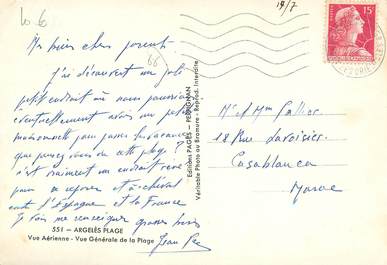 19/7
15F
Mes biens chers parents.
J'ai découvert un joli
petit endroit où nous pourrions
éventuellement avoir un petit
maisonnette pour passer les vacances
que pensez-vous de cette plage ?
c'est vraiment un endroit rêvé
pour se reposer et à cheval
entre l'Espagne et la France
Je vais me renseigner grosses bises
Jean
66
Editions PAGÈS - PERPIGNAN
Véritable Photo au Bromure - Reprod. Interdite
Mr et Mme
18 Rue Lavoisier
Casablanca
Maroc
551 - ARGELÈS PLAGE
Vue Aérienne - Vue Générale de la Plage